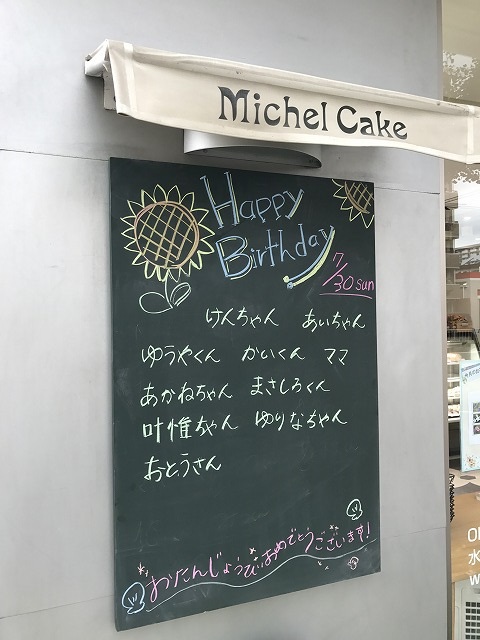 Michel Cake
Happy
Birthday
7/30 sun
けんちゃん あいちゃん
ゆうやくん かいくん ママ
あかねちゃん まさしろくん
叶惟ちゃん ゆりなちゃん
おとうさん
おたんじょうびおめでとうございます!